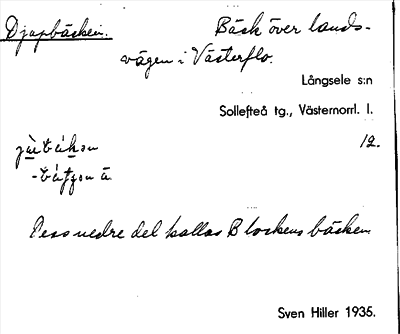 Djupbäcken. Bäck över lands-
vägen i Västerflo.
Långsele s:n
Sollefteå tg., Västernorrl. l.
12.
Dess nedre del kallas Blockens bäcken
Sven Hiller 1935.